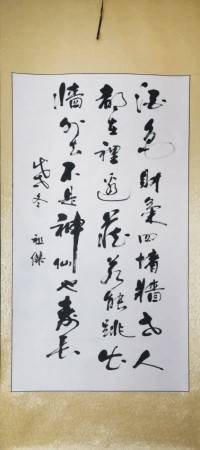 酒色財氣四堵牆世人
都在裡邊藏若能跳出
牆外去不是神仙也壽長
歲冬 祖傑